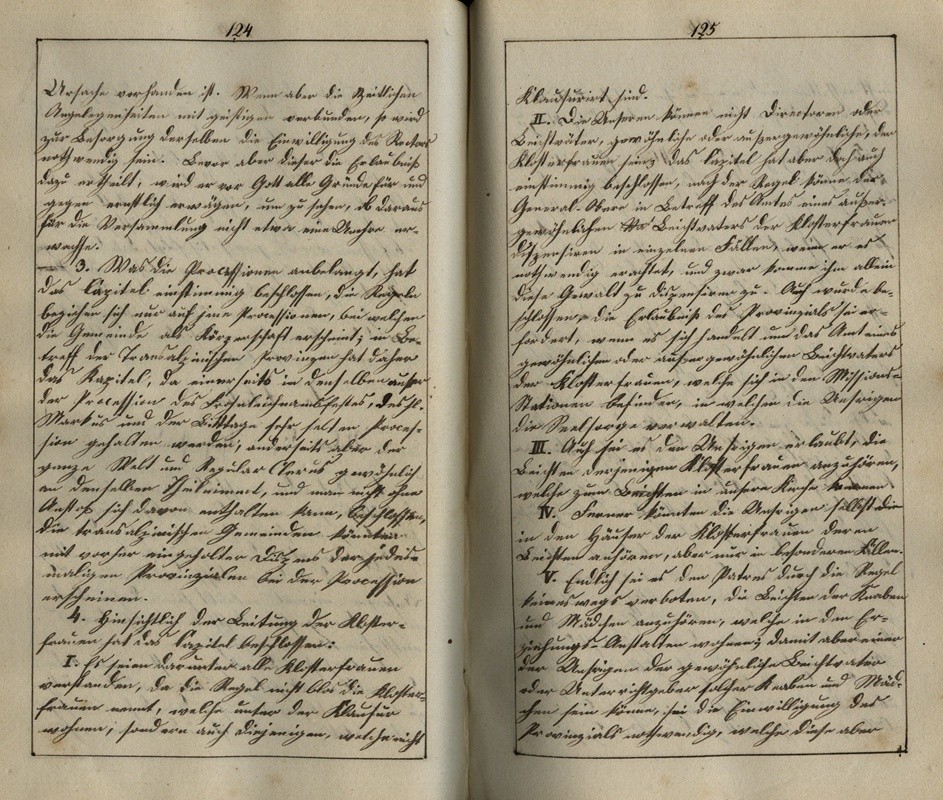 124
Ursache vorhanden ist. Wenn aber die zeitlichen
Angelegenheiten mit geistigen verbunden, so wird
zur Besorgung derselben die Einwilligung des Rectors
nothwendig sein. Bevor aber dieser die Erlaubniß
dazu ertheilt, wird er vor Gott alle Gründe für und
gegen ernstlich erwägen, um zu sehen, ob daraus
für die Versammlung nicht etwa eine Unehre er-
wachse.
3. Was die Processionen anbelangt, hat
das Capitel einstimmig beschlossen, die Regeln
beziehen sich nur auf jene Processionen, bei welchen
die Gemeinde als Körperschaft erscheint; in Be-
treff der Transalpinischen Provinzen hat daher
das Kapitel, da einerseits in denselben außer
der Procession des Frohnleichnamsfestes, des hl.
Markus und der Bitttage sehr selten Proces-
sion gehalten werden, anderseits aber der
ganze Welt und Regular Clerus gewöhnlich
an denselben theilnimmt, und man nicht ohne
Anstoß sich davon enthalten kann, beschlossen,
die transalpinischen Gemeinden könnten
mit vorher eingeholter Dispens der jedes-
maligen Provinzialen bei der Procession
erscheinen.
4. Hinsichtlich der Leitung der Kloster-
frauen hat das Capitel beschlossen:
I. Es seien darunter alle Klosterfrauen
verstanden, da die Regel nicht blos die Kloster-
frauen nennt, welche unter der Klausur
wohnen, sondern auch diejenigen, welche nicht
125
Klausurirt sind.
II. Die Unseren können nicht Directoren oder
Beichtväter, gewöhnliche oder außergewöhnliche, der
Klosterfrauen sein; das Capitel hat aber doch auch
einstimmig beschlossen, nach der Regel könne der
General-Obere in Betreff des Amtes eines außer-
gewöhnlichen Beichtvaters der Klosterfrauen
dispensiren in einzelnen Fällen, wenn er es
nothwendig erachtet, und zwar komme ihm allein
diese Gewalt zu dispensiren zu. Auch wurde be-
schlossen, die Erlaubniß des Provinzials sei er-
fordert, wenn es sich handelt um das Amt eines
gewöhnlichen oder außergewöhnlichen Beichtvaters
der Klosterfrauen, welche sich in den Missions-
Stationen befinden, in welchen die Unsrigen
die Seelsorge verwalten.
III. Auch sei es den Unsrigen erlaubt, die
Beichten derjenigen Klosterfrauen anzuhören,
welche zum Beichten in unsere Kirche kommen.
IV. Ferner könnten die Unsrigen selbst die
in den Häuser der Klosterfrauen deren
Beichten anhören, aber nur in besonderen Fällen.
V. Endlich sei es den Patres durch die Regel
keineswegs verboten, die Beichten der Knaben
und Mädchen anzuhören, welche in den Er-
ziehungs-Anstalten wohnen; damit aber einer
der Unsrigen der gewöhnliche Beichtvater
oder Unterrichtgeber solcher Knaben und Mäd-
chen sein könne, sei die Einwilligung des
Provinzials nothwendig, welche diese aber